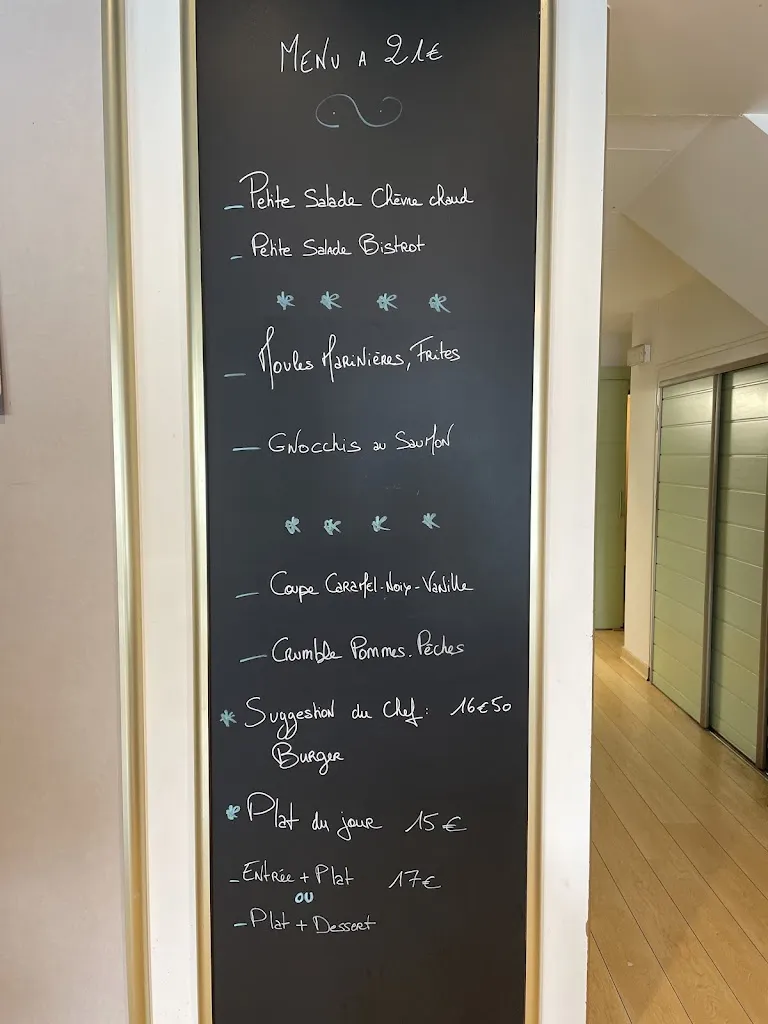 MENU A 21€
- Petite Salade Chèvre chaud
- Petite Salade Bistrot
* * * *
- Moules Marinières, Frites
- Gnocchis au Saumon
* * * *
- Coupe Caramel-Noix-Vanille
- Crumble Pommes. Pêches
* Suggestion du Chef: 16€50
Burger
* Plat du jour 15€
- Entrée + Plat 17€
ou
- Plat + Dessert